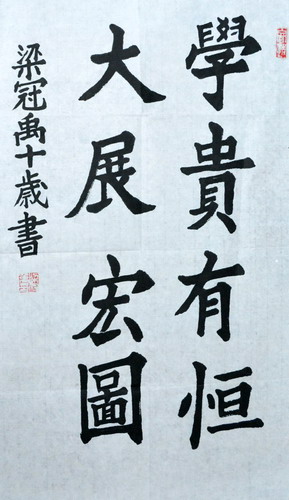 學貴有恒
大展宏圖
梁冠禹十歲書